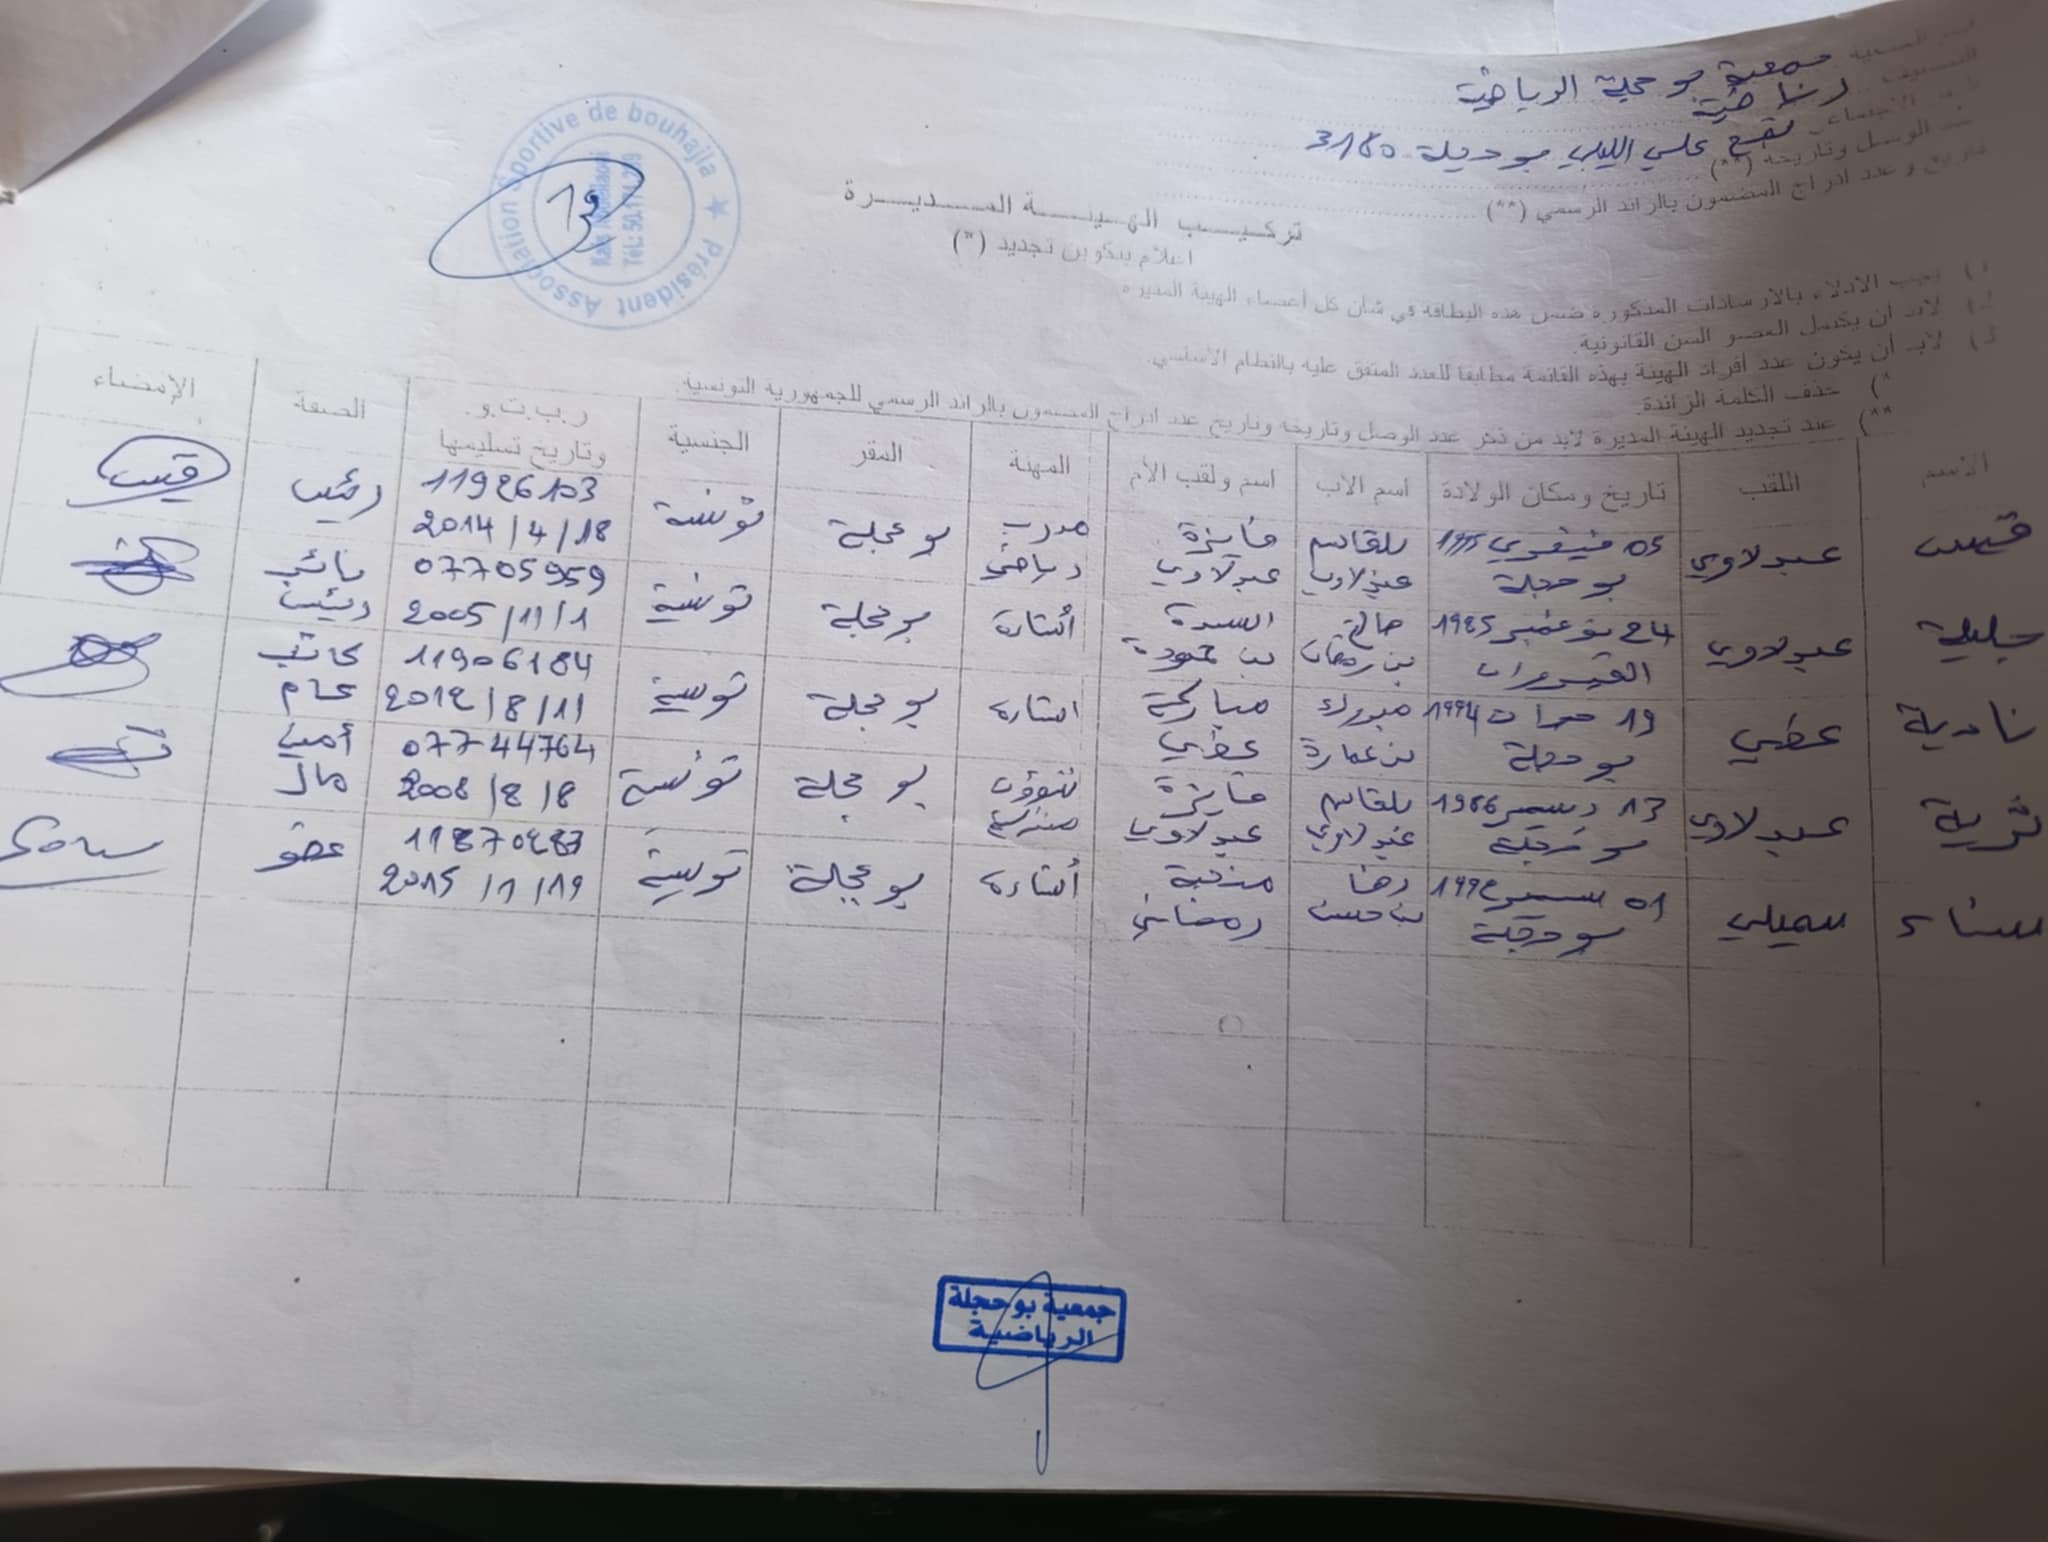 إسم الجمعية جمعية بوحجلة الرياضية
التصنيف رياضية
المقر الاجتماعي نهج علي الليلي بوحجلة 3180
عدد الوصل وتاريخه (**)
تاريخ وعدد ادراج المضمون بالرائد الرسمي (**)
Association Sportive de bouhajla ★ Président
Tél.: 50.171.299
تركيـب الهيئـة المـديـرة
اعلام بتكوين تجديد (*)
1) يجب الادلاء بالارشادات المذكورة ضمن هذه البطاقة في شأن كل أعضاء الهيئة المديرة
2) لابد أن يكتمل العضو السن القانونية.
3) لابد أن يكون عدد أفراد الهيئة بهذه القائمة مطابقا للعدد المتفق عليه بالنظام الأساسي.
*) حذف الكلمة الزائدة.
**) عند تجديد الهيئة المديرة لابد من ذكر عدد الوصل وتاريخه وتاريخ عدد ادراج المضمون بالرائد الرسمي للجمهورية التونسية.
الاسم اللقب تاريخ ومكان الولادة اسم الأب اسم ولقب الأم المهنة المقر الجنسية ر.ب.ت.و. وتاريخ تسليمها الصفة الإمضاء
قيس عبدلاوي 05 فيفري 1995 بلقاسم فايزة مدرب بوحجلة تونسية 11926103 رئيس قيس
بوحجلة عبدلاوي عبدلاوي رياضي 2014/4/18
جليلة عبدلاوي 24 نوفمبر 1985 صالح السيدة أستاذة بوحجلة تونسية 07705959 نائب
القيروان بن رمضان بن حمودة 2005/11/1 رئيس
نادية عطي 19 جوان 1994 مبروك مباركة استاذة بوحجلة تونسية 11906184 كاتب
بوحجلة بن عمارة عطي 2012/8/11 عام
ثرية عبدلاوي 13 ديسمبر 1986 بلقاسم فايزة شؤون بوحجلة تونسية 07744764 أمين
بوحجلة عبدلاوي عبدلاوي منزلية 2008/8/8 مال
سناء سميلي 01 1992 رضا أستاذة بوحجلة تونسية 11870283 عضو
بوحجلة بن حسن رمضاني 2015/1/19
جمعية بوحجلة
الرياضية